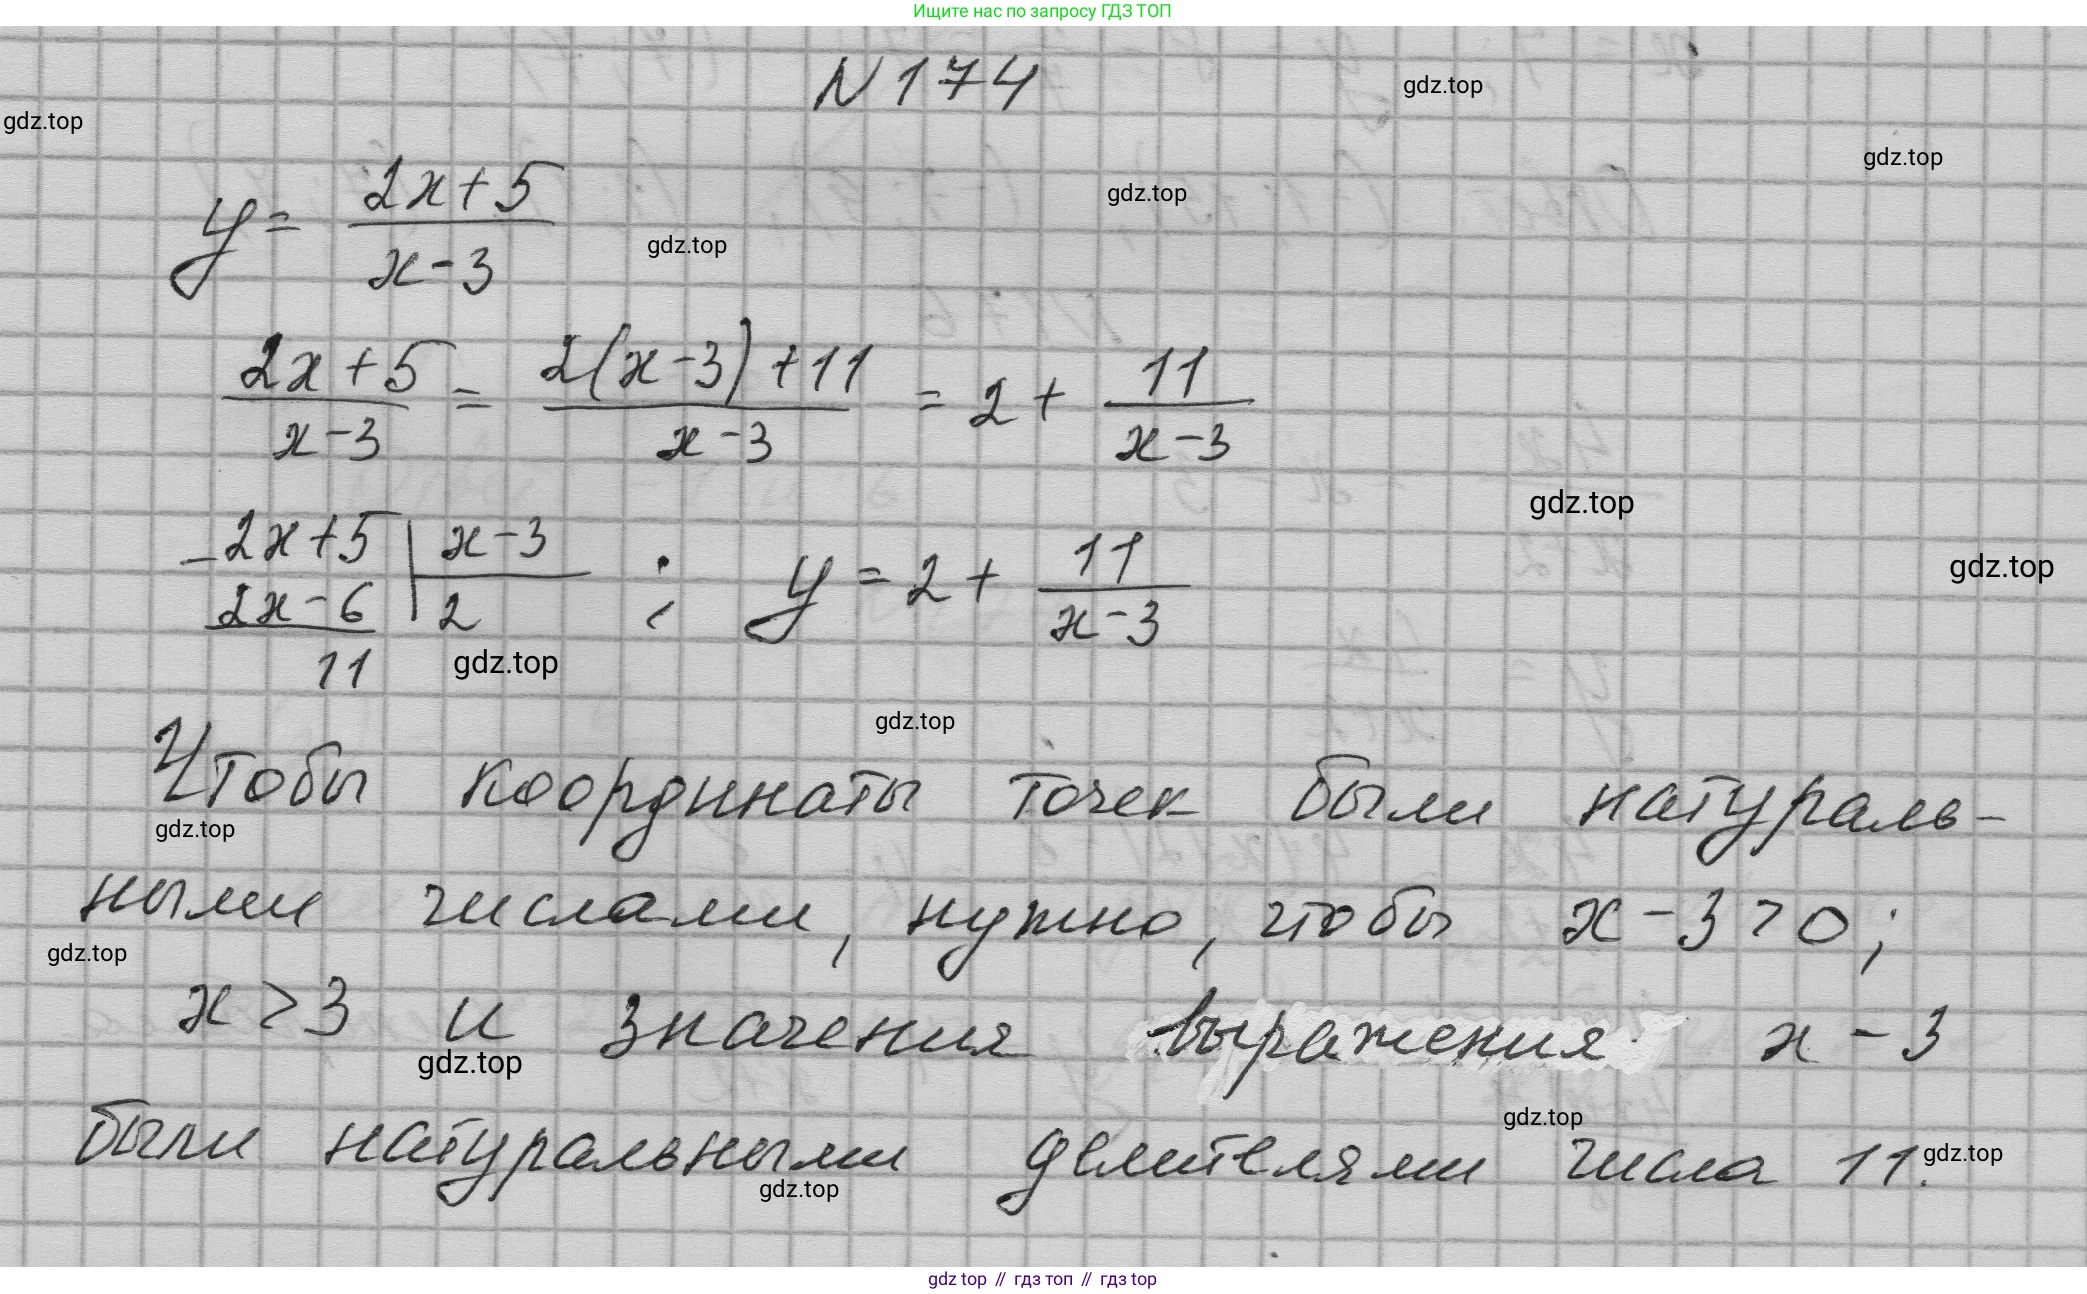 Ищите нас по запросу ГДЗ ТОП
N 174
gdz.top
gdz.top
gdz.top
gdz.top
y = (2x+5)/(x-3)
gdz.top
(2x+5)/(x-3) = (2(x-3)+11)/(x-3) = 2 + 11/(x-3)
gdz.top
-2x+5 | x-3 ; y = 2 + 11/(x-3)
gdz.top
2x-6 | 2
11
gdz.top
gdz.top
Чтобы координаты точек были натураль-
gdz.top
ными числами, нужно, чтобы x-3>0;
gdz.top
x>3 и значения выражения x-3
gdz.top
gdz.top
были натуральными делителями числа 11.
gdz.top
gdz.top
gdz top // гдз топ // гдз top